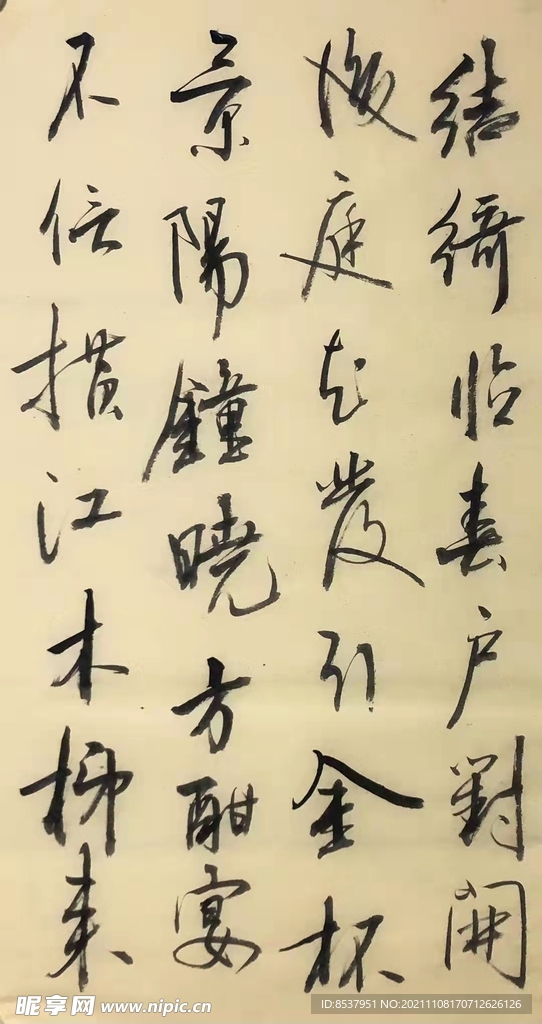 结绮临春户對開
後庭花發引金杯
景陽鐘曉方酣宴
不信横江木柹来
昵享网 www.nipic.cn
ID:8537951 NO:20211108170712626126